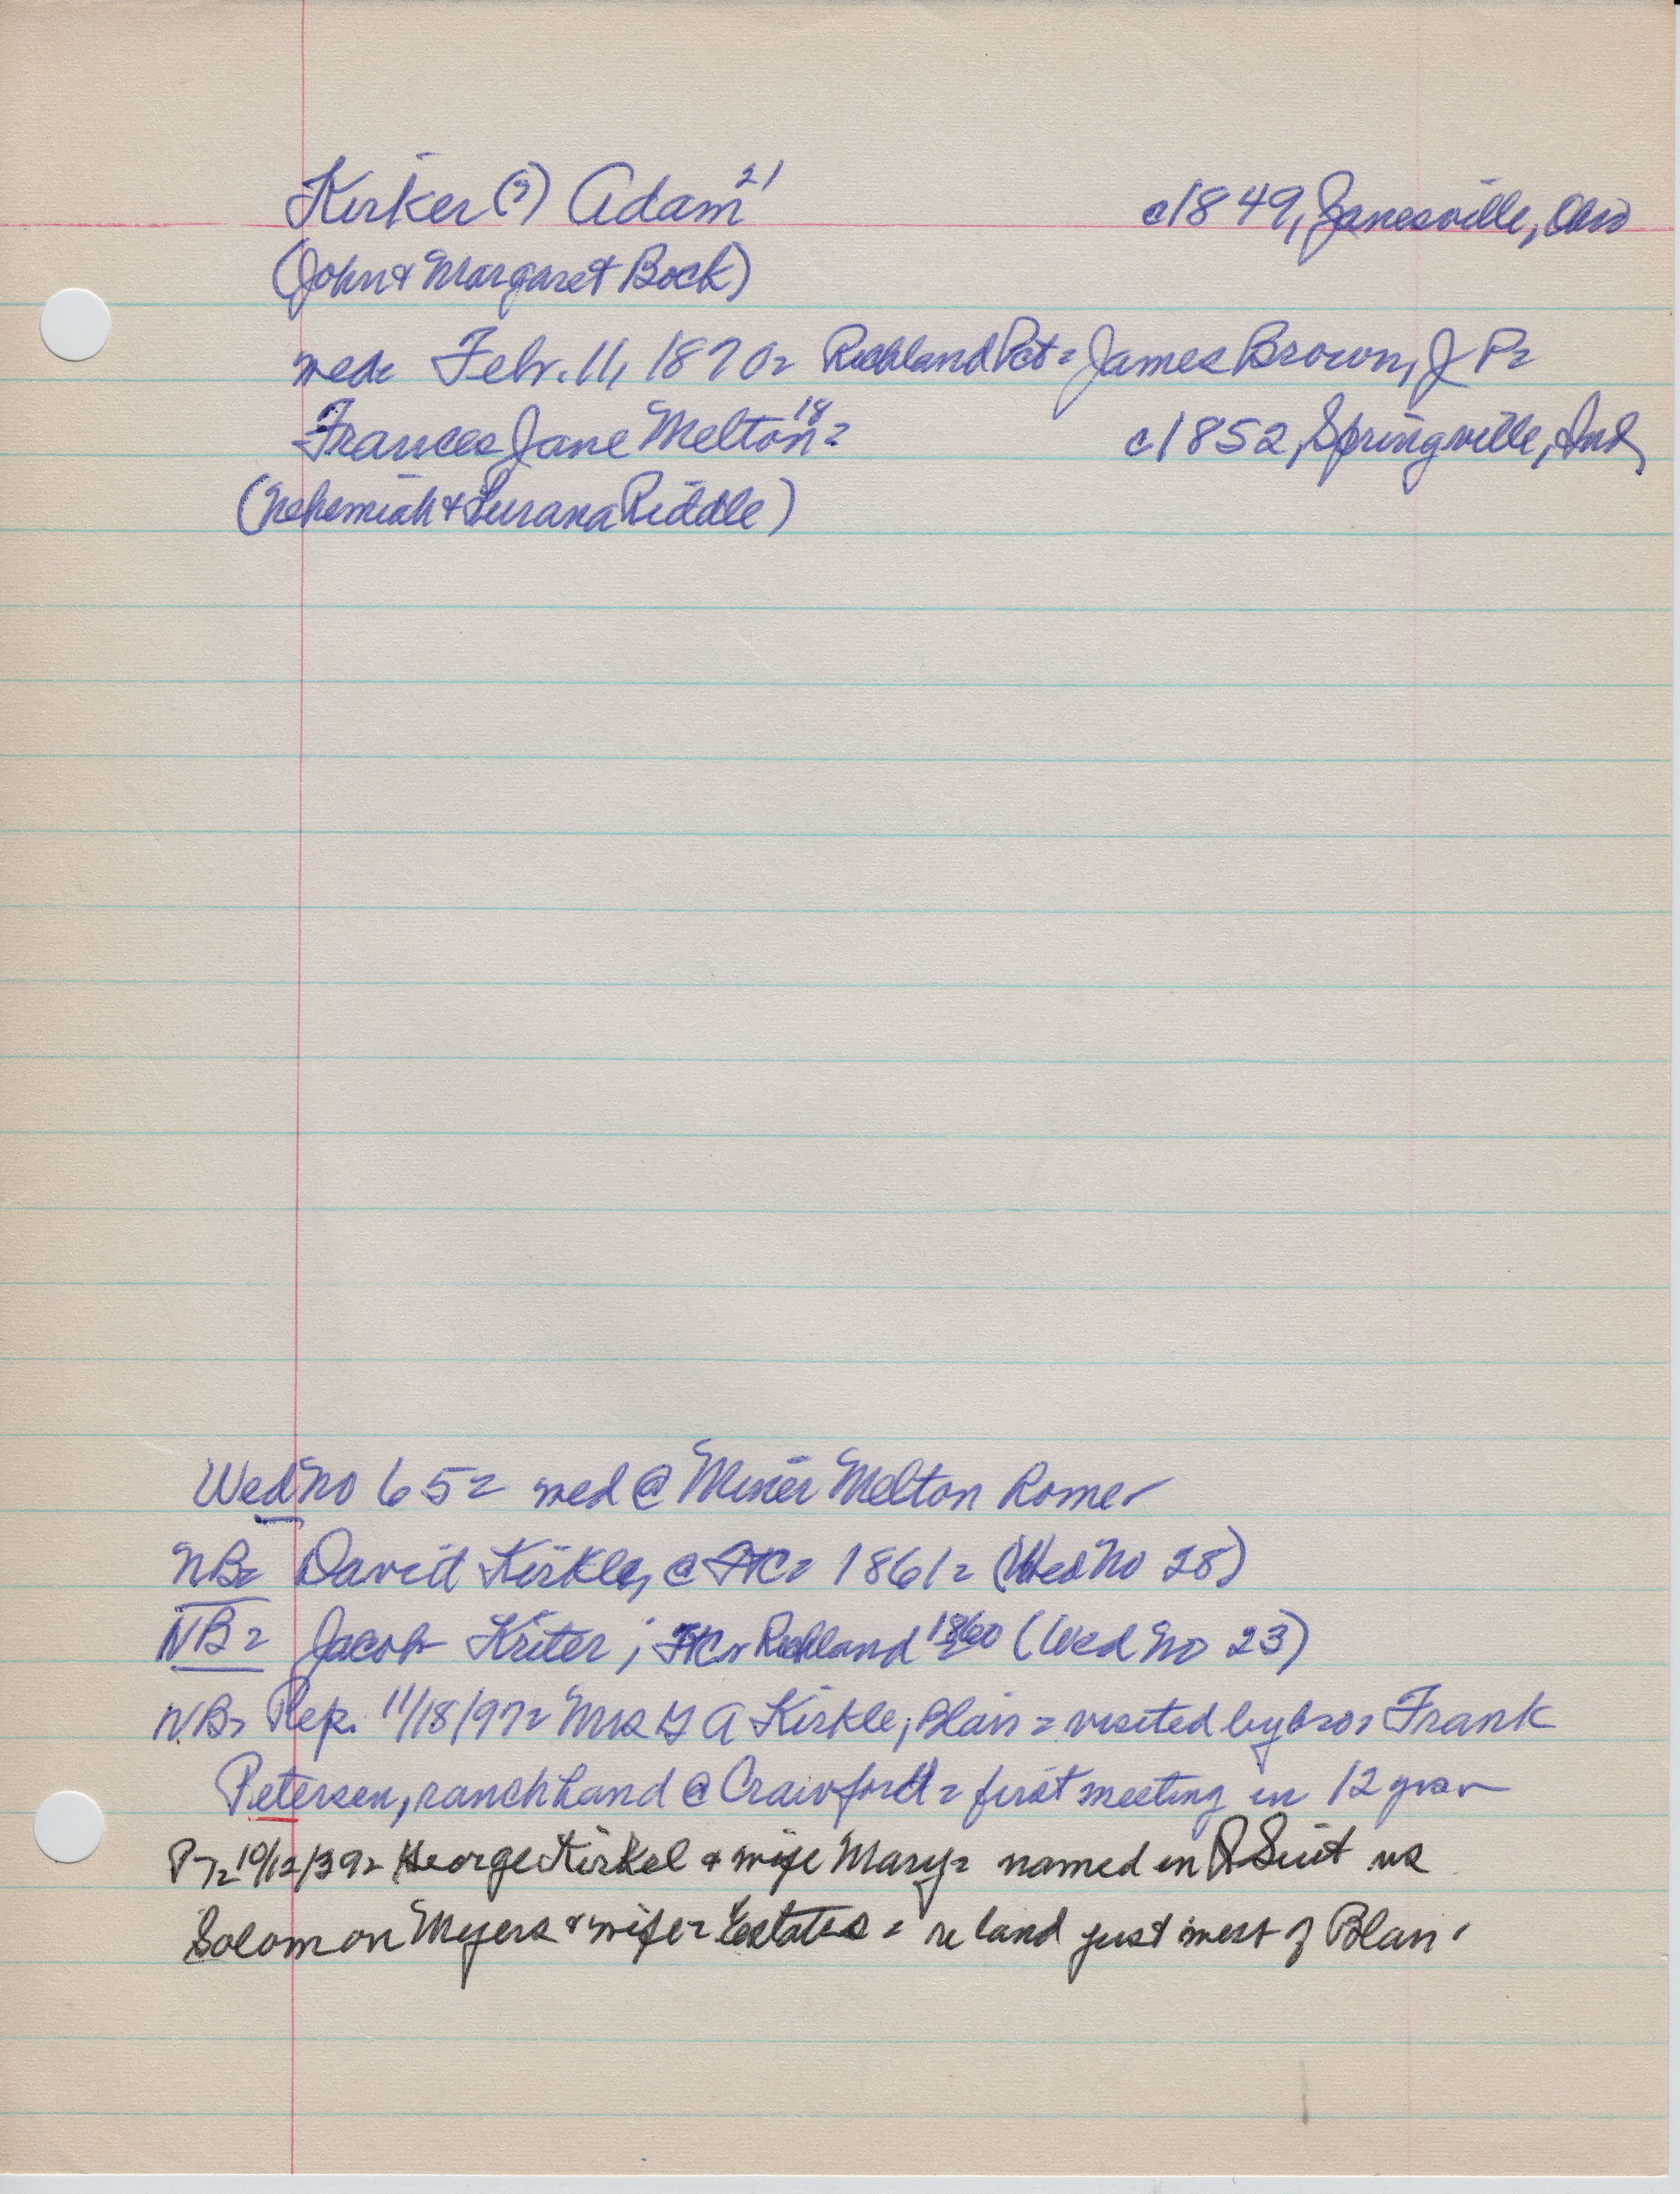 Kirker (?) Adam 21 c1849, Janesville, Ohio
(John & Margaret Bock)
wed= Febr. 11, 1870= Richland Pct= James Brown, J P=
Frances Jane Melton 18= c1852, Springville, Ind,
(Nehemiah & Lurana Riddle)
Wed No 65= wed @ Miner Melton Home
NB= David Kirkle, @ FtC= 1861= (Wed No 28)
NB= Jacob Kriter; FtC= Richland 1860 (Wed No 23)
NB= Rep. 11/18/97= Mrs G A Kirkle; Blair= visited by bro= Frank
Petersen, ranch hand @ Crawford= first meeting in 12 yrs
PT= 10/12/39= George Kirkel & wife Mary= named in Q Suit vs
Solomon Meyers & wife= Estates= re land just west of Blair